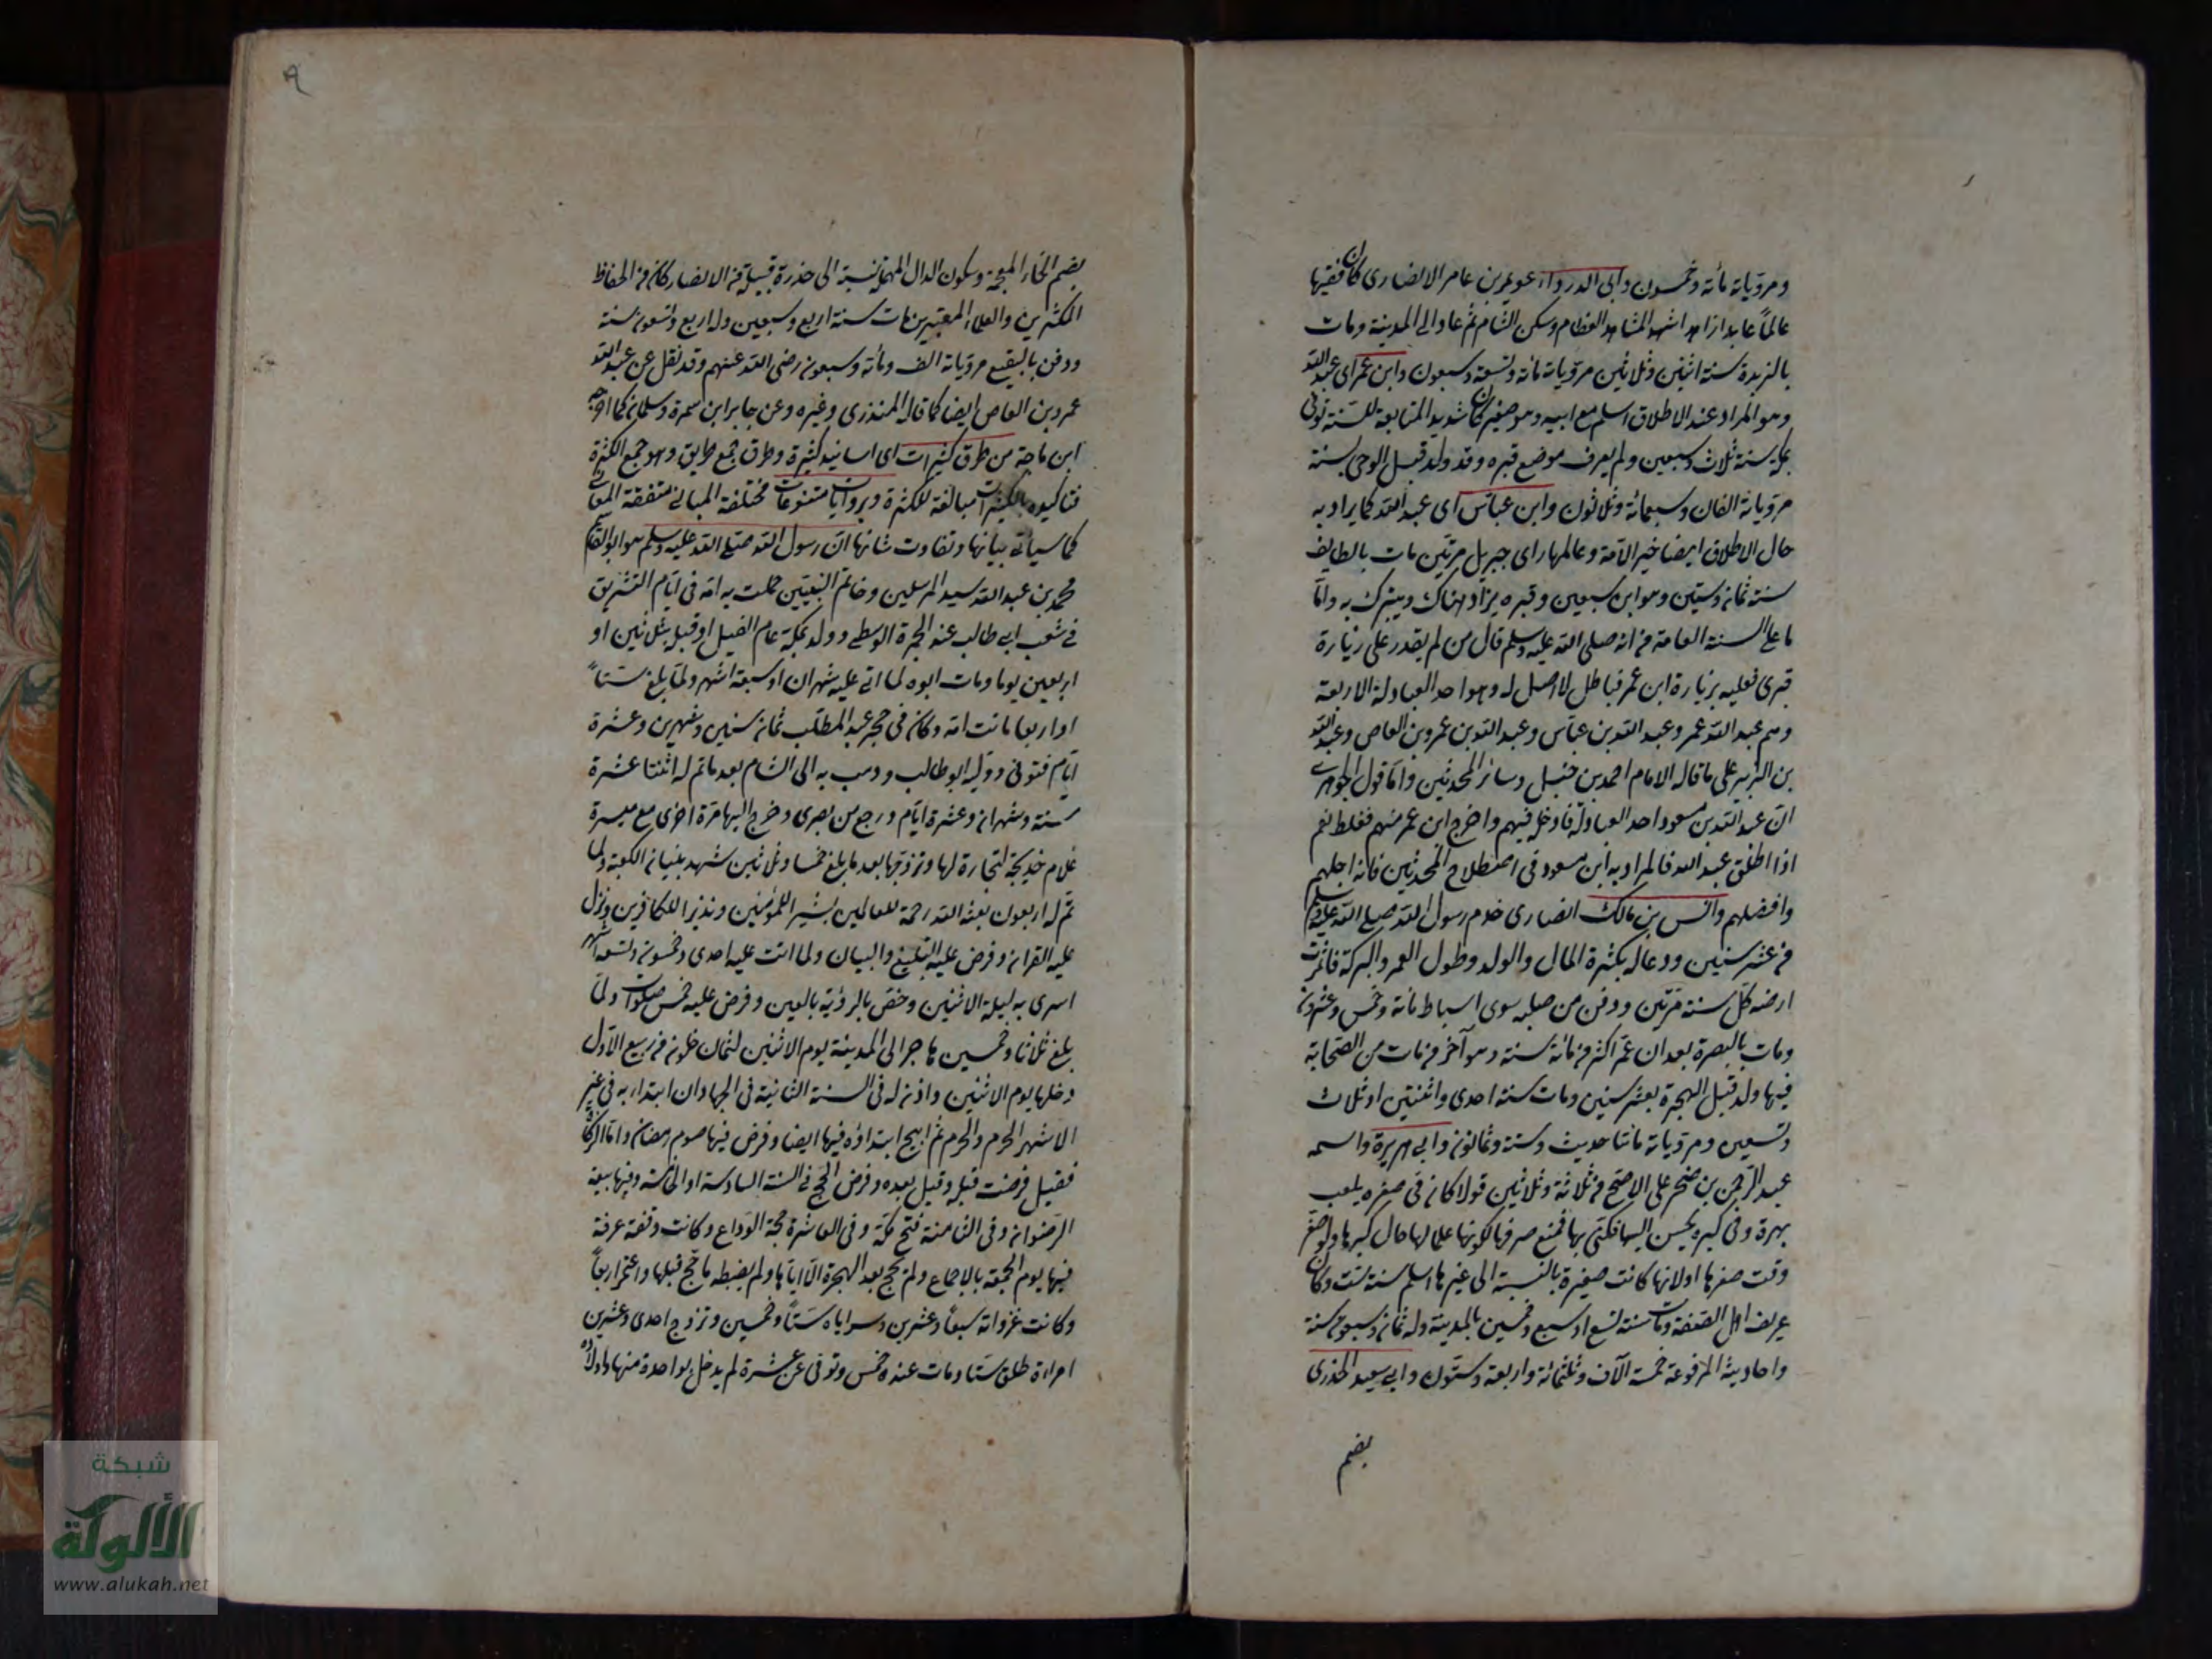 ومروياته مائة وخمسون وابى الدرداء عويمر بن عامر الانصارى كان فقيها
عالماً عابدا زاهدا شهد المشاهد العظام وسكن الشام ثم عاد الى المدينة ومات
بالزبدة سنة اثنين وثلاثين مروياته مائة وتسعة وسبعون وابن عمر اى عبد الله
وهو المراد عند الاطلاق اسلم مع ابيه وهو صغير كان شديد المتابعة للسنة توفى
بمكة سنة ثلاث وسبعين ولم يعرف موضع قبره وقد ولد قبل الوحى بسنة
مروياته الفان وسبعمائة وثلاثون وابن عباس اى عبد الله كما يراد به
حال الاطلاق ايضا خير الامة وعالمها راى جبريل مرتين مات بالطايف
سنة ثمان وستين وهو ابن سبعين وقبره يزار هناك ويتبرك به واما
ما على السنة العامة من انه صلى الله عليه وسلم قال من لم يقدر على زيارة
قبرى فعليه بزيارة ابن عمر فباطل لا اصل له وهو احد العبادلة الاربعة
وهم عبد الله عمر وعبد الله بن عباس وعبد الله بن عمرو بن العاص وعبد الله
بن الزبير على ما قاله الامام احمد بن حنبل وسائر المحدثين واما قول الجوهرى
ان عبد الله بن مسعود احد العبادلة فادخله فيهم واخرج ابن عمر منهم فغلط نعم
اذا اطلق عبد الله فالمراد به ابن مسعود فى اصطلاح المحدثين فانه اجلهم
وافضلهم وانس بن مالك انصارى خدم رسول الله صلى الله عليه وسلم
من عشر سنين ودعا له بكثرة المال والولد وطول العمر والبركة فاثمرت
ارضه كل سنة مرتين ودفن من صلبه سوى اسباط مائة وخمس وعشرون
ومات بالبصرة بعد ان عمر اكثر من مائة سنة وهو آخر من مات من الصحابة
فيها ولد قبل الهجرة بعشر سنين ومات سنة احدى واثنتين او ثلاث
وتسعين ومروياته مائتا حديث وستة وثمانون وابى هريرة واسمه
عبد الرحمن بن صخر على الاصح من ثلاثة وثلاثين قولا كان فى صغره يلعب
بهرة وفى كبره يحسن اليها فكنى بها فمنع صرفها لكونها علما لها حال كبرها ولو صغر
وقت صغرها اولانها كانت صغيرة بالنسبة الى غيرها اسلم سنة ست وكان
عريف اهل الصفة ومات سنة تسع او سبع وخمسين بالمدينة وله ثمان وسبعون سنة
واحاديثه المرفوعة خمسة الآف وثلثمائة واربعة وستون وابى سعيد الخدرى
بضم
٩
بضم الخاء المعجمة وسكون الدال المهملة نسبة الى خدرة قبيلة من الانصار كان من الحفاظ
المكثرين والعلماء المعتبرين مات سنة اربع وسبعين وله اربع وتسعون سنة
ودفن بالبقيع مروياته الف ومائة وسبعون رضى الله عنهم وقد نقل عن عبد الله
عمرو بن العاص ايضا كما قاله المنذرى وغيره وعن جابر ابن سمرة وسلمان كما اخرجه
ابن ماجة من طرق كثيرات اى اسانيد كثيرة وطرق جمع طريق وهو جمع الكثرة
فتاكيده بالكثيرات مبالغة للكثرة وبروايات متنوعات مختلفة المبانى متفقة المعانى
كما سيأتى بيانها وتفاوت شانها ان رسول الله صلى الله عليه وسلم هو ابو القاسم
محمد بن عبد الله سيد المرسلين وخاتم النبيين حملت به امه فى ايام التشريق
فى شعب ابى طالب عند الجمرة الوسطى وولد بمكة عام الفيل او قبله بثلاثين او
اربعين يوما ومات ابوه لما اتى عليه شهران او سبعة اشهر ولما بلغ ستاً
او اربعا ماتت امه وكان فى حجر عبد المطلب ثمان سنين وشهرين وعشرة
ايام فتوفى ووليه ابو طالب وذهب به الى الشام بعد ما تم له اثنتا عشرة
سنة وشهران وعشرة ايام ورجع من بصرى وخرج اليها مرة اخرى مع ميسرة
غلام خديجة لتجارة لها وتزوجها بعد ما بلغ خمسا وثلاثين شهد بنيان الكعبة ولما
تم له اربعون بعثه الله رحمة للعالمين بشيرا للمؤمنين ونذيرا للكافرين ونزل
عليه القران وفرض عليه التبليغ والبيان ولما اتت عليه احدى وخمسون وتسعة اشهر
اسرى به ليلة الاثنين وخص بالرؤية بالعين وفرض عليه خمس صلوات ولما
بلغ ثلاثا وخمسين هاجر الى المدينة يوم الاثنين لثمان خلون من ربيع الاول
دخلها يوم الاثنين واذن له فى السنة الثانية فى الجهاد ان ابتدا به فى غير
الاشهر الحرم والحرم ثم ابيح ابتداؤه فيها ايضا وفرض فيها صوم رمضان واما الزكاة
فقيل فرضت قبله وقيل بعده وفرض الحج فى السنة السادسة او الخامسة وفيها بيعة
الرضوان وفى الثامنة فتح مكة وفى العاشرة حجة الوداع وكانت وقفة عرفة
فيها يوم الجمعة بالاجماع ولم يحج بعد الهجرة الا اياها ولم يضبط ما حج قبلها واعتمر اربعاً
وكانت غزواته سبعاً وعشرين وسراياه ستاً وخمسين وتزوج احدى وعشرين
امراءة طلق ستا ومات عنده خمس وتوفى عن عشرة لم يدخل بواحدة منها واولاده
شبكة
الألوكة
www.alukah.net